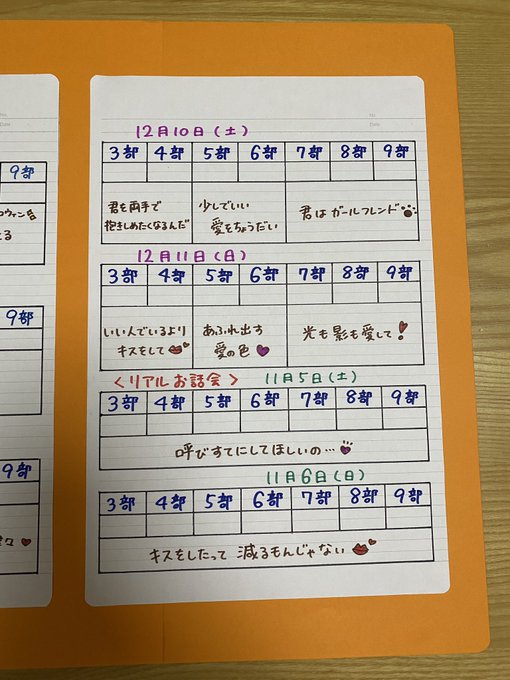 9部
る
9部
9部
No.
Date
12月10日(土)
3部 4部 5部 6部 7部 8部 9部
君を両手で
抱きしめたくなるんだ
少しでいい
愛をちょうだい
君はガールフレンド
12月11日(日)
3部 4部 5部 6部 7部 8部 9部
いい人でいるより
キスをして
あふれ出す
愛の色
光も影も愛して!
<リアルお話会> 11月5日(土)
3部 4部 5部 6部 7部 8部 9部
呼びすてにしてほしいの…
11月6日(日)
3部 4部 5部 6部 7部 8部 9部
キスをしたって 減るもんじゃない